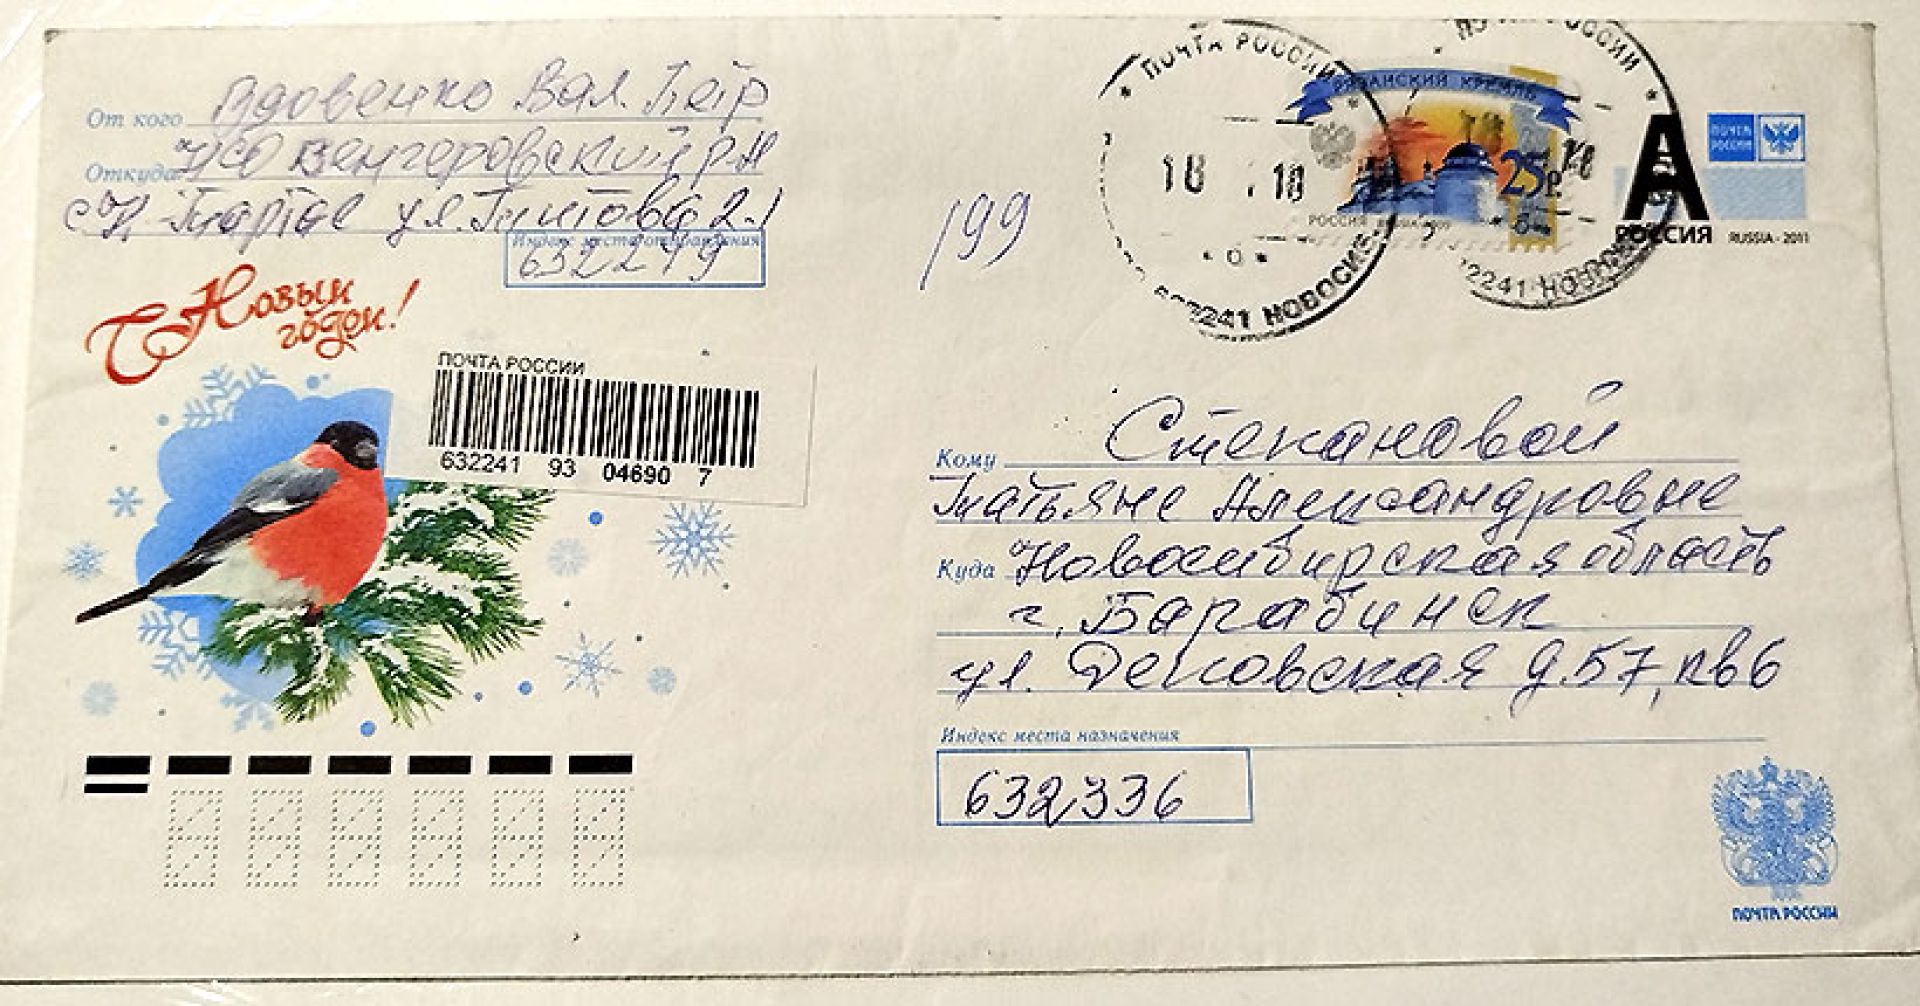 От кого Вдовенко Вал. Петр
Откуда НСО Венгеровский р-н
с. Н-Тартас ул. Титова 2-1
Индекс места отправления
632249
С Новым
годом!
ПОЧТА РОССИИ
632241 93 04690 7
199
ПОЧТА РОССИИ
18 10
241 НОВОСИБ
ПОЧТА РОССИИ
2241 НОВОСИБ
РЯЗАНСКИЙ КРЕМЛЬ
25р
РОССИЯ
А
ПОЧТА
РОССИИ
РОССИЯ RUSSIA-2011
Кому Стекановой
Татьяне Александровне
Куда Новосибирская область
г. Барабинск
ул. Деповская д. 57, кв 6
Индекс места назначения
632336
ПОЧТА РОССИИ